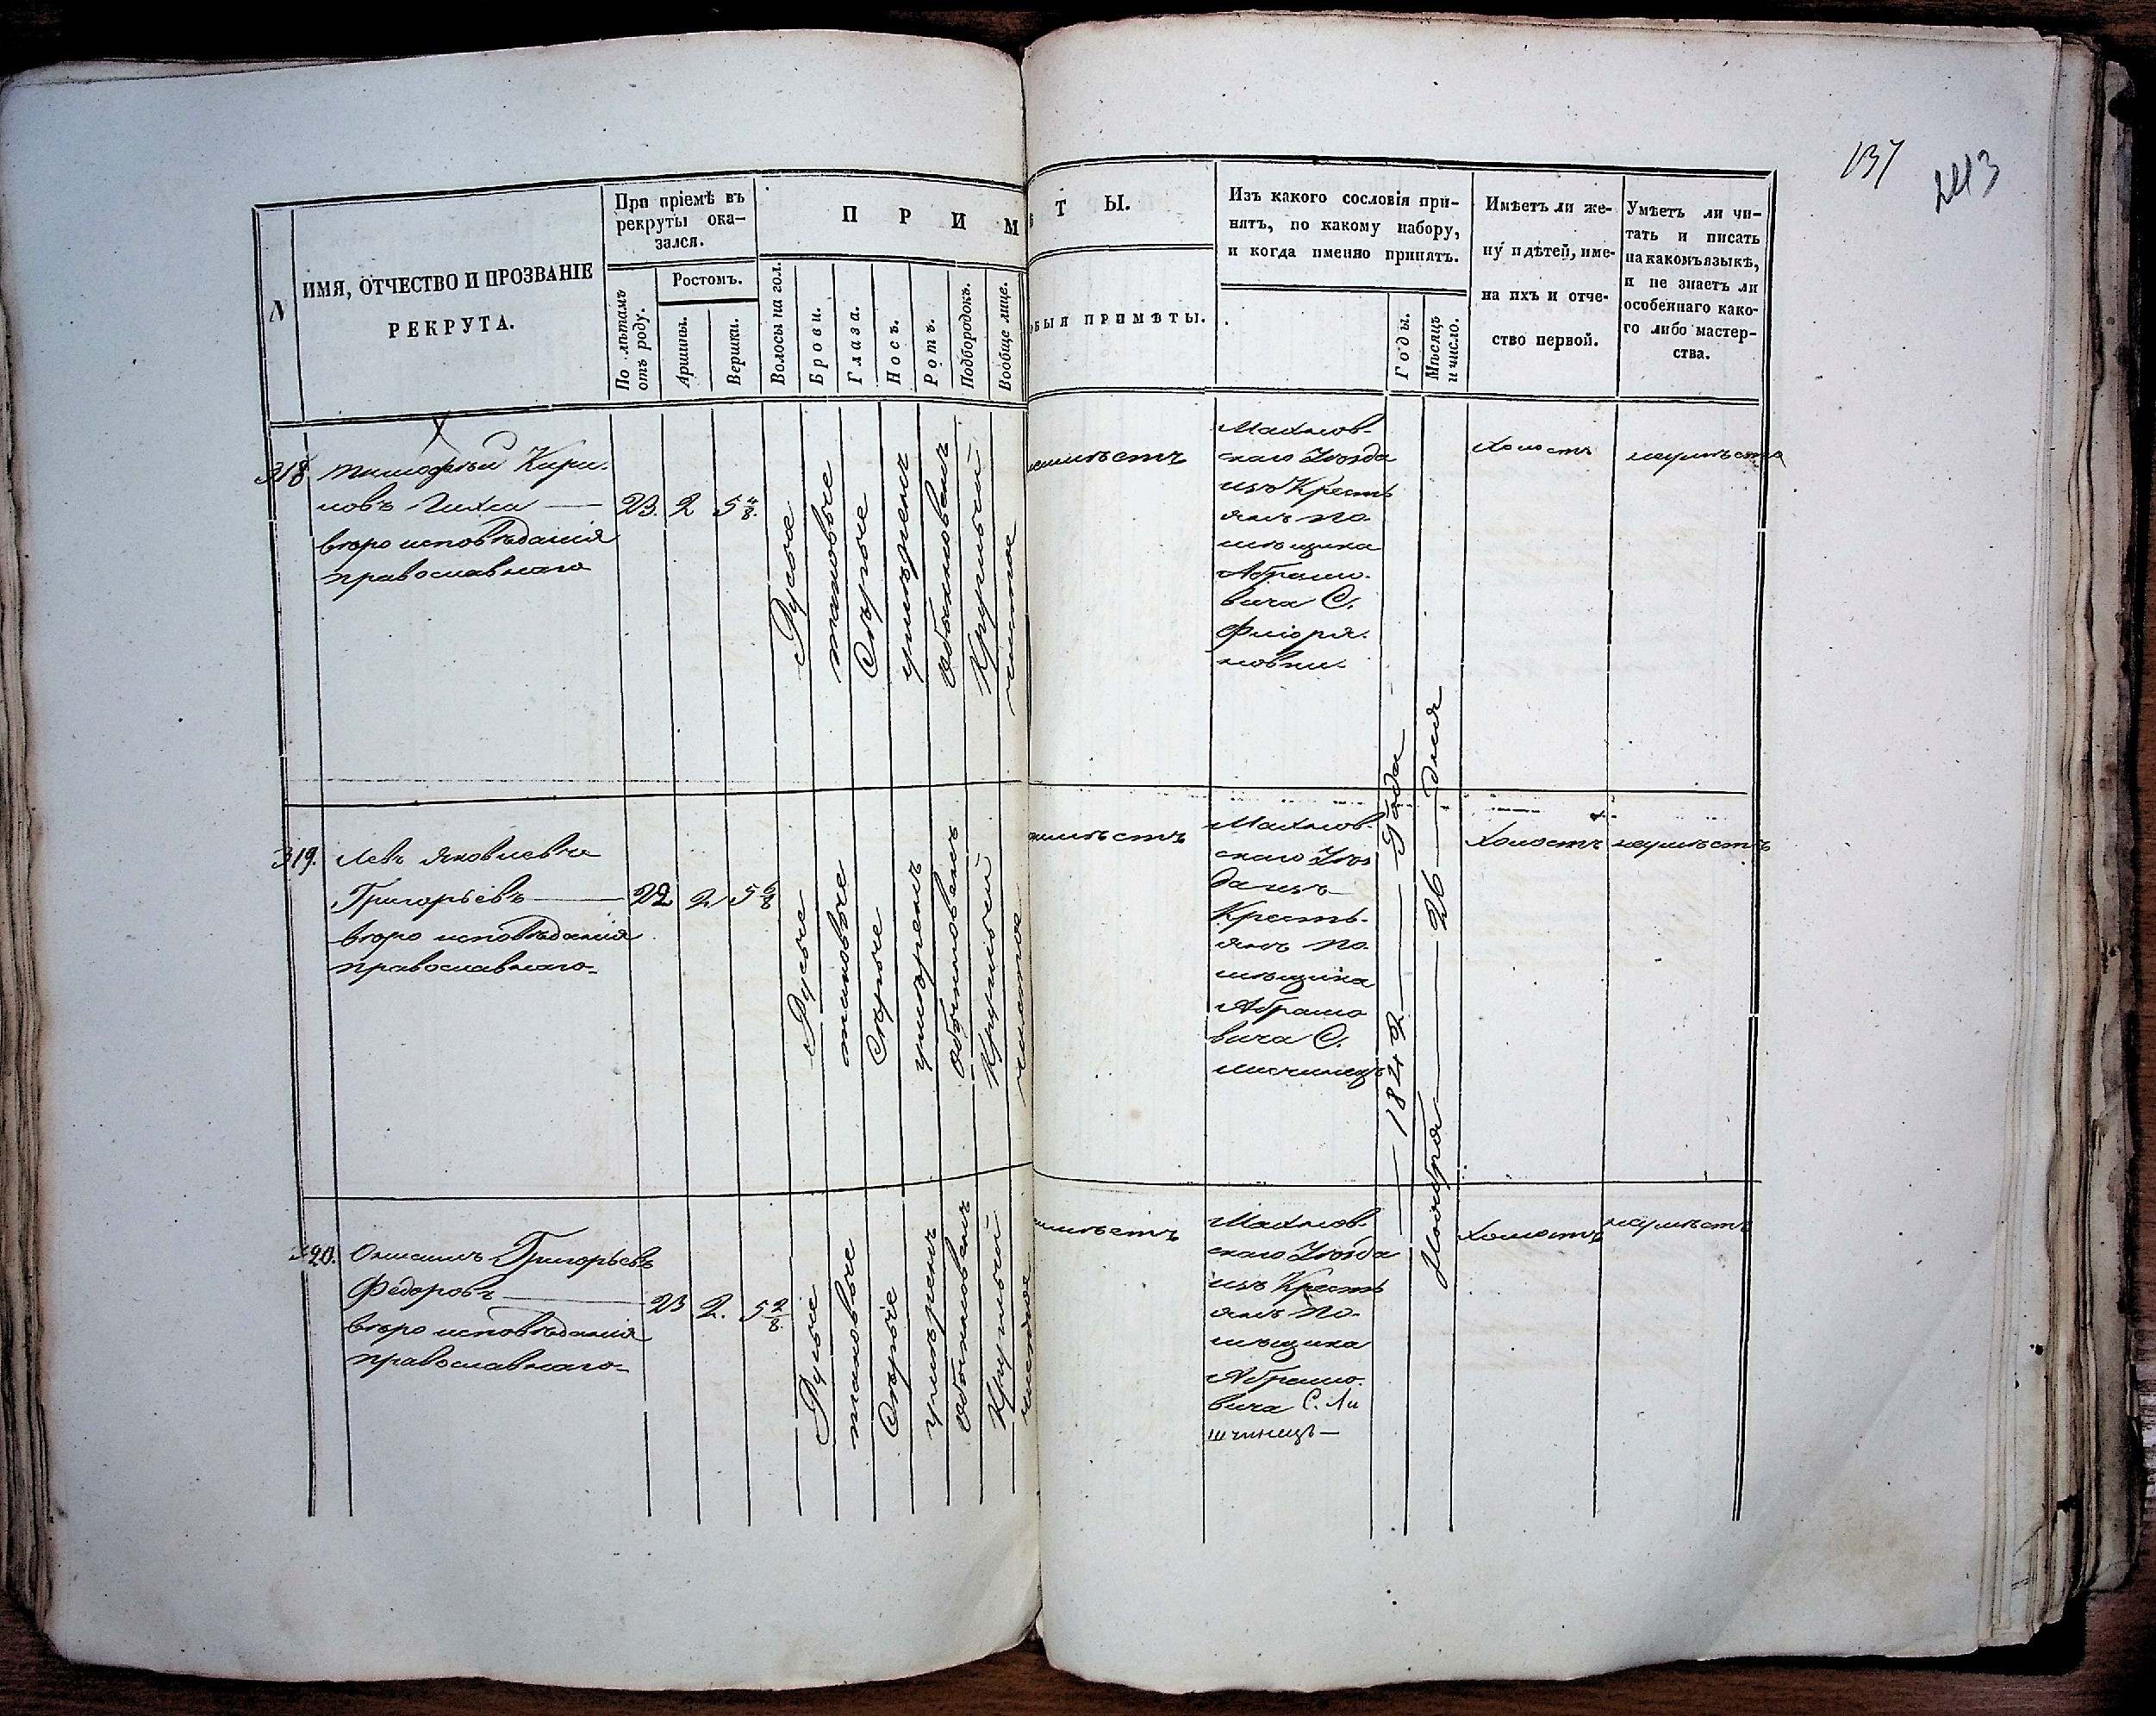 137
243
N
ИМЯ, ОТЧЕСТВО И ПРОЗВАНІЕ
РЕКРУТА.
При пріемѣ въ
рекруты ока-
зался.
По лѣтамъ
отъ роду.
Ростомъ.
Аршины.
Вершки.
П Р И М
Волосы на гол.
Брови.
Глаза.
Носъ.
Ротъ.
Подбородокъ.
Вообще лице.
Т Ы.
БЫЯ ПРИМѢТЫ.
Изъ какого сословія при-
нятъ, по какому набору,
и когда именно принятъ.
Годы.
Мѣсяцъ
и число.
Имѣетъ ли же-
ну и дѣтей, име-
на ихъ и отче-
ство первой.
Умѣетъ ли чи-
тать и писать
на какомъ языкѣ,
и не знаетъ ли
особеннаго како-
го либо мастер-
ства.
318
Тимофей Кири-
ловъ
вѣроисповѣданія
православнаго
23. 2 5 4/8.
Русые
таковые
Сѣрые
умѣренъ
обыкновенъ
Круглый
чистое
неимѣетъ
Махнов-
скаго Уѣзда
изъ Кресть
янъ по-
мѣщика
Абрамо-
вича С.
Флорія-
новки.
холостъ
неумѣетъ
319.
Левъ Яковлевъ
Григорьевъ
вѣроисповѣданія
православнаго
22 2 5 6/8
Русые
таковые
Сѣрые
умѣренъ
обыкновенъ
Круглый
чистое
неимѣетъ
Махнов-
скаго Уѣз
да изъ
Кресть-
янъ по-
мѣщика
Абрамо
вича С.
Лисчинецъ
1842 Года
Ноября 26 дня
холостъ
неумѣетъ
320.
Григорьевъ
Федоровъ
вѣроисповѣданія
православнаго
23 2. 5 2/8.
Русые
таковые
Сѣрые
умѣренъ
обыкновенъ
Круглый
чистое
имѣетъ
Махнов-
скаго Уѣзда
изъ Кресть
янъ по-
мѣщика
Абрамо-
вича С. Ли
щинецъ
холостъ
неумѣетъ